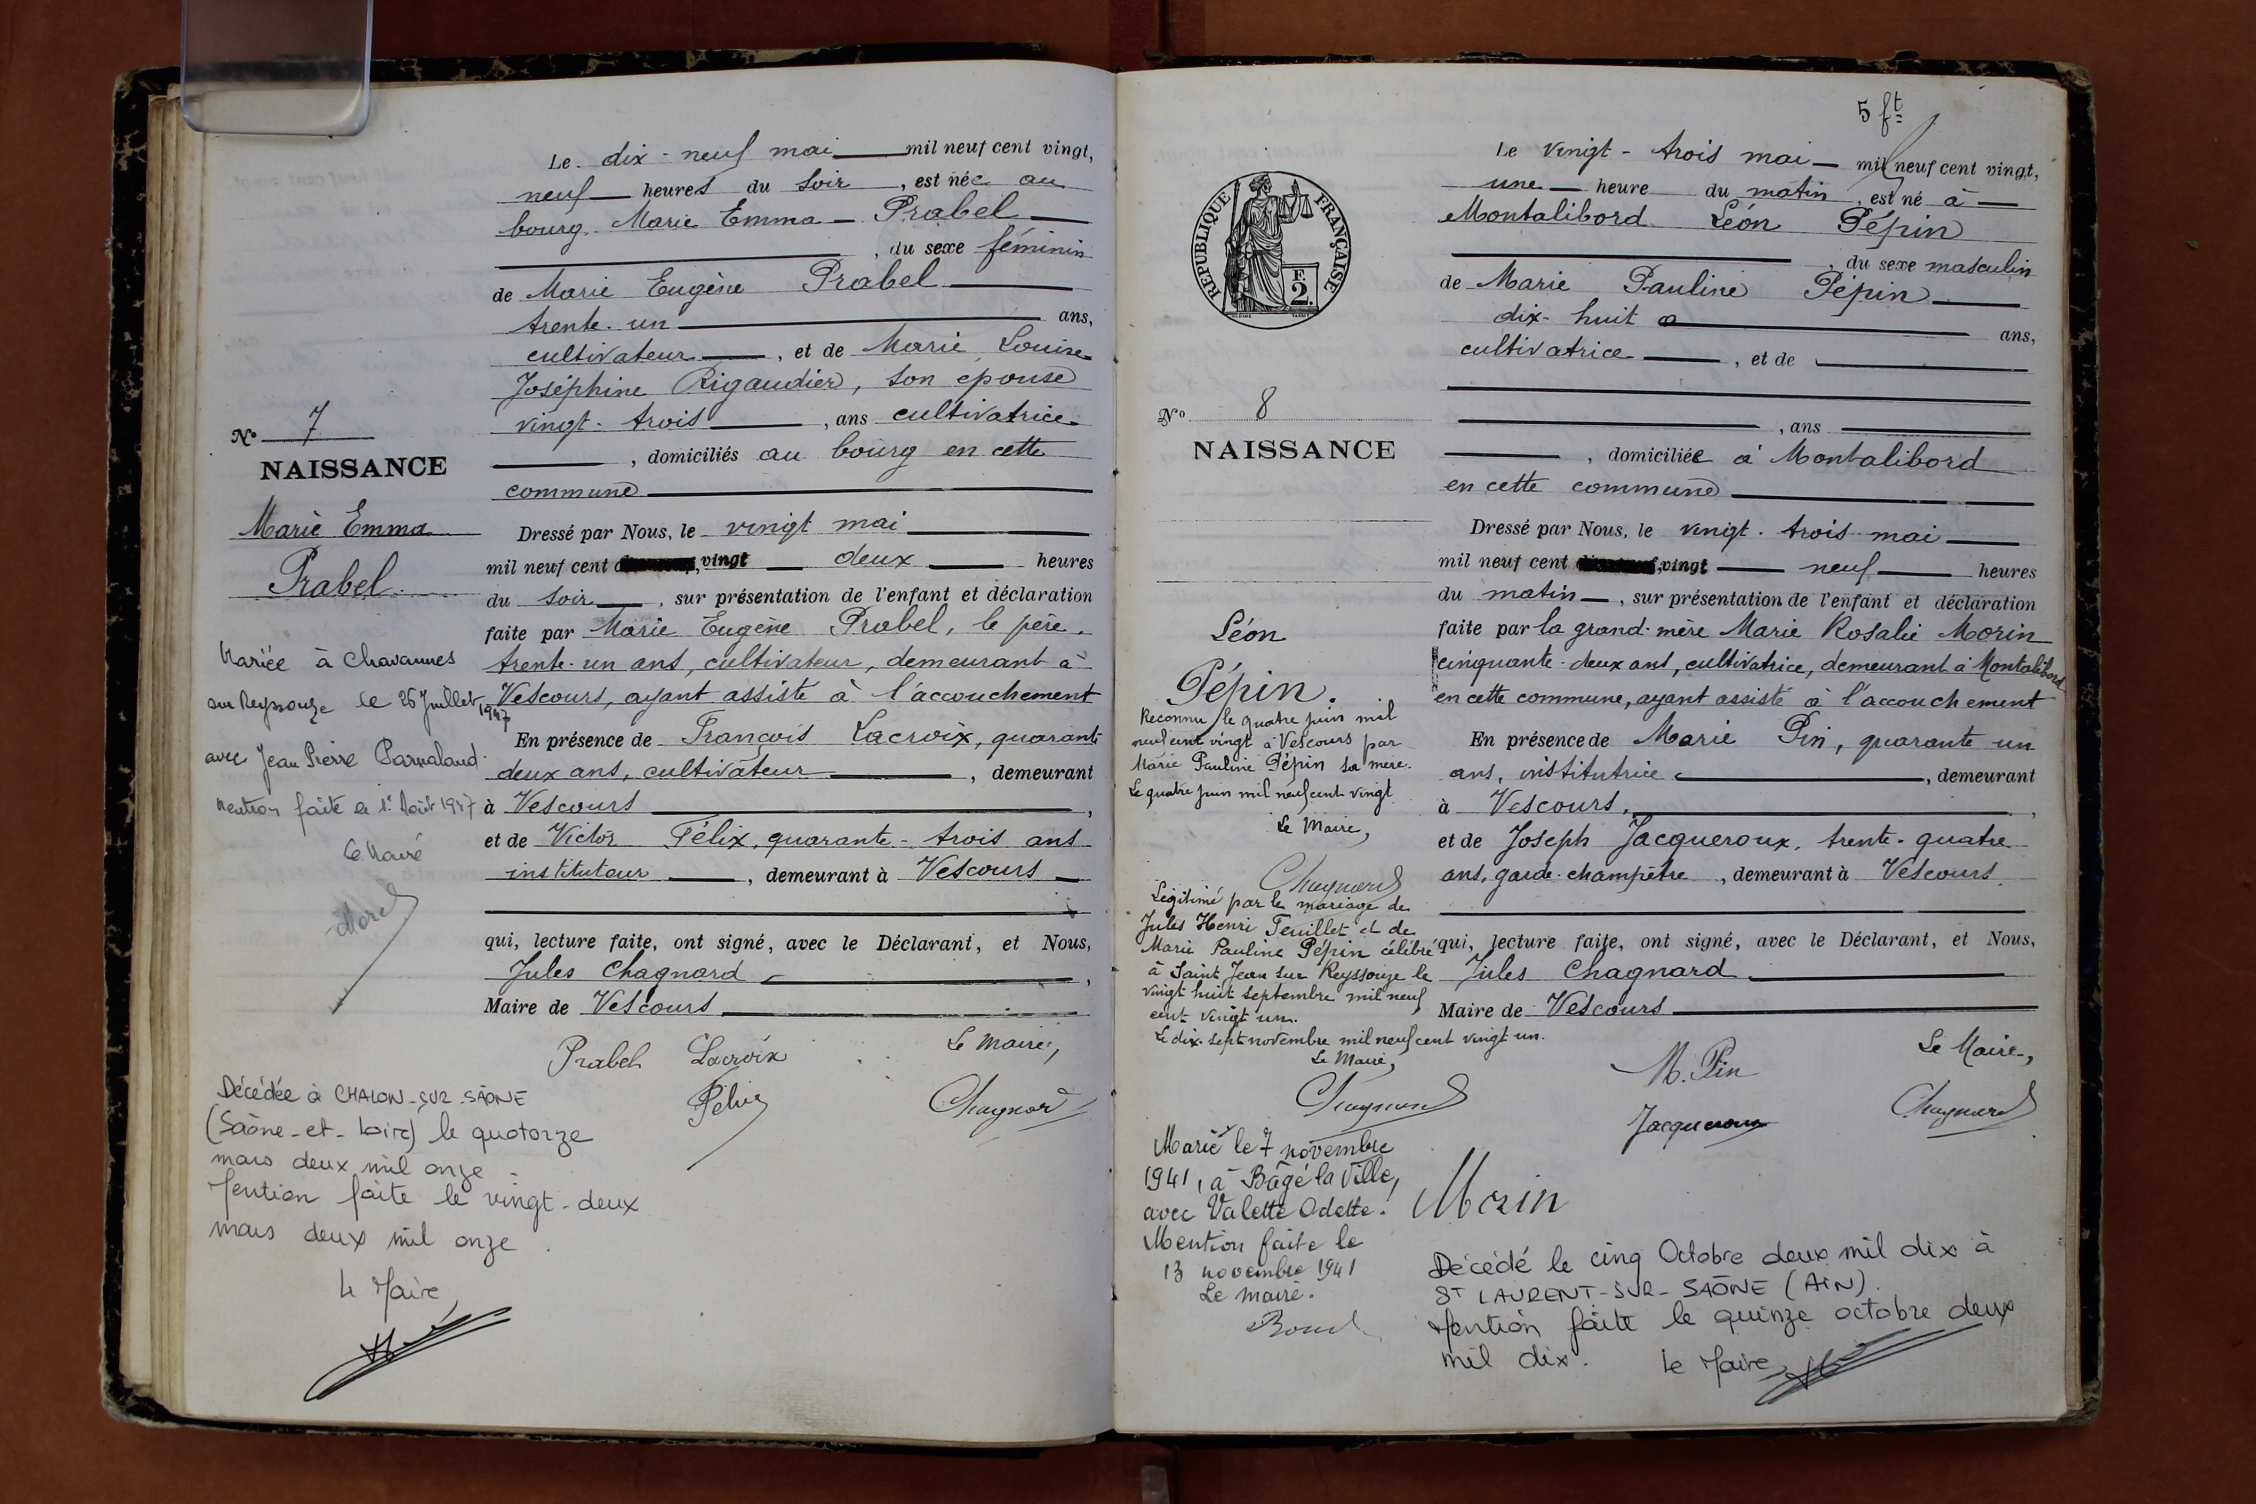 Le dix-neuf mai mil neuf cent vingt,
neuf heures du soir, est née au
bourg Marie Emma Prabel
, du sexe féminin
de Marie Eugène Prabel
trente-un ans,
cultivateur, et de Marie Louise
Joséphine Rigaudier, son épouse
vingt-trois, ans cultivatrice
, domiciliés au bourg en cette
commune
Dressé par Nous, le vingt mai
mil neuf cent vingt deux heures
du soir, sur présentation de l'enfant et déclaration
faite par Marie Eugène Prabel, le père,
trente-un ans, cultivateur, demeurant à
Vescours, ayant assisté à l'accouchement
En présence de François Lacroix, quarante
deux ans, cultivateur, demeurant
à Vescours,
et de Victor Félix, quarante-trois ans
instituteur, demeurant à Vescours
qui, lecture faite, ont signé, avec le Déclarant, et Nous,
Jules Chagnard,
Maire de Vescours
Le Maire,
Prabel Lacroix
Félix Chagnard
No 7
NAISSANCE
Marie Emma
Prabel
Mariée à Chavannes
sur Reyssouze le 26 Juillet 1947
avec Jean Pierre Parnaland
mention faite le 1er Août 1947
Le Maire
Morel
Décédée à CHALON-SUR-SAÔNE
(Saône-et-Loire) le quatorze
mars deux mil onze.
Mention faite le vingt-deux
mars deux mil onze.
Le Maire,
5 ft
RÉPUBLIQUE FRANÇAISE
F.
2.
Le vingt-trois mai mil neuf cent vingt,
une heure du matin, est né à
Montalibord Léon Pépin
, du sexe masculin
de Marie Pauline Pépin
dix-huit ans,
cultivatrice, et de
, ans
, domiciliée à Montalibord
en cette commune
Dressé par Nous, le vingt-trois mai
mil neuf cent vingt neuf heures
du matin, sur présentation de l'enfant et déclaration
faite par la grand-mère Marie Rosalie Morin
cinquante-deux ans, cultivatrice, demeurant à Montalibord
en cette commune, ayant assisté à l'accouchement
En présence de Marie Pin, quarante un
ans, institutrice, demeurant
à Vescours,
et de Joseph Jacqueroux, trente-quatre
ans, garde-champêtre, demeurant à Vescours
qui, lecture faite, ont signé, avec le Déclarant, et Nous,
Jules Chagnard
Maire de Vescours
Le Maire,
M. Pin
Jacqueroux Chagnard
Morin
No 8
NAISSANCE
Léon
Pépin.
Reconnu le quatre juin mil
neuf cent vingt à Vescours par
Marie Pauline Pépin sa mère.
Le quatre juin mil neuf cent vingt
Le Maire,
Chagnard
Légitimé par le mariage de
Jules Henri Feuillet et de
Marie Pauline Pépin célébré
à Saint Jean sur Reyssouze le
vingt huit septembre mil neuf
cent vingt un.
Le dix-sept novembre mil neuf cent vingt un.
Le Maire,
Chagnard
Marié le 7 novembre
1941, à Bâgé la Ville,
avec Valette Odette.
Mention faite le
13 novembre 1941
Le maire.
Décédé le cinq Octobre deux mil dix à
ST LAURENT-SUR-SAÔNE (AIN).
Mention faite le quinze octobre deux
mil dix. Le Maire,